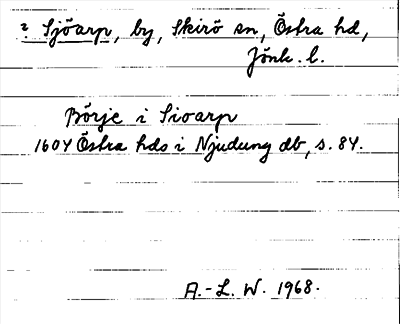 2 Sjöarp, by, Skirö sn, Östra hd,
Jönk. l.
Börje i Sioarp
1604 Östra hds i Njudung db, s. 84.
A.-L. W. 1968.